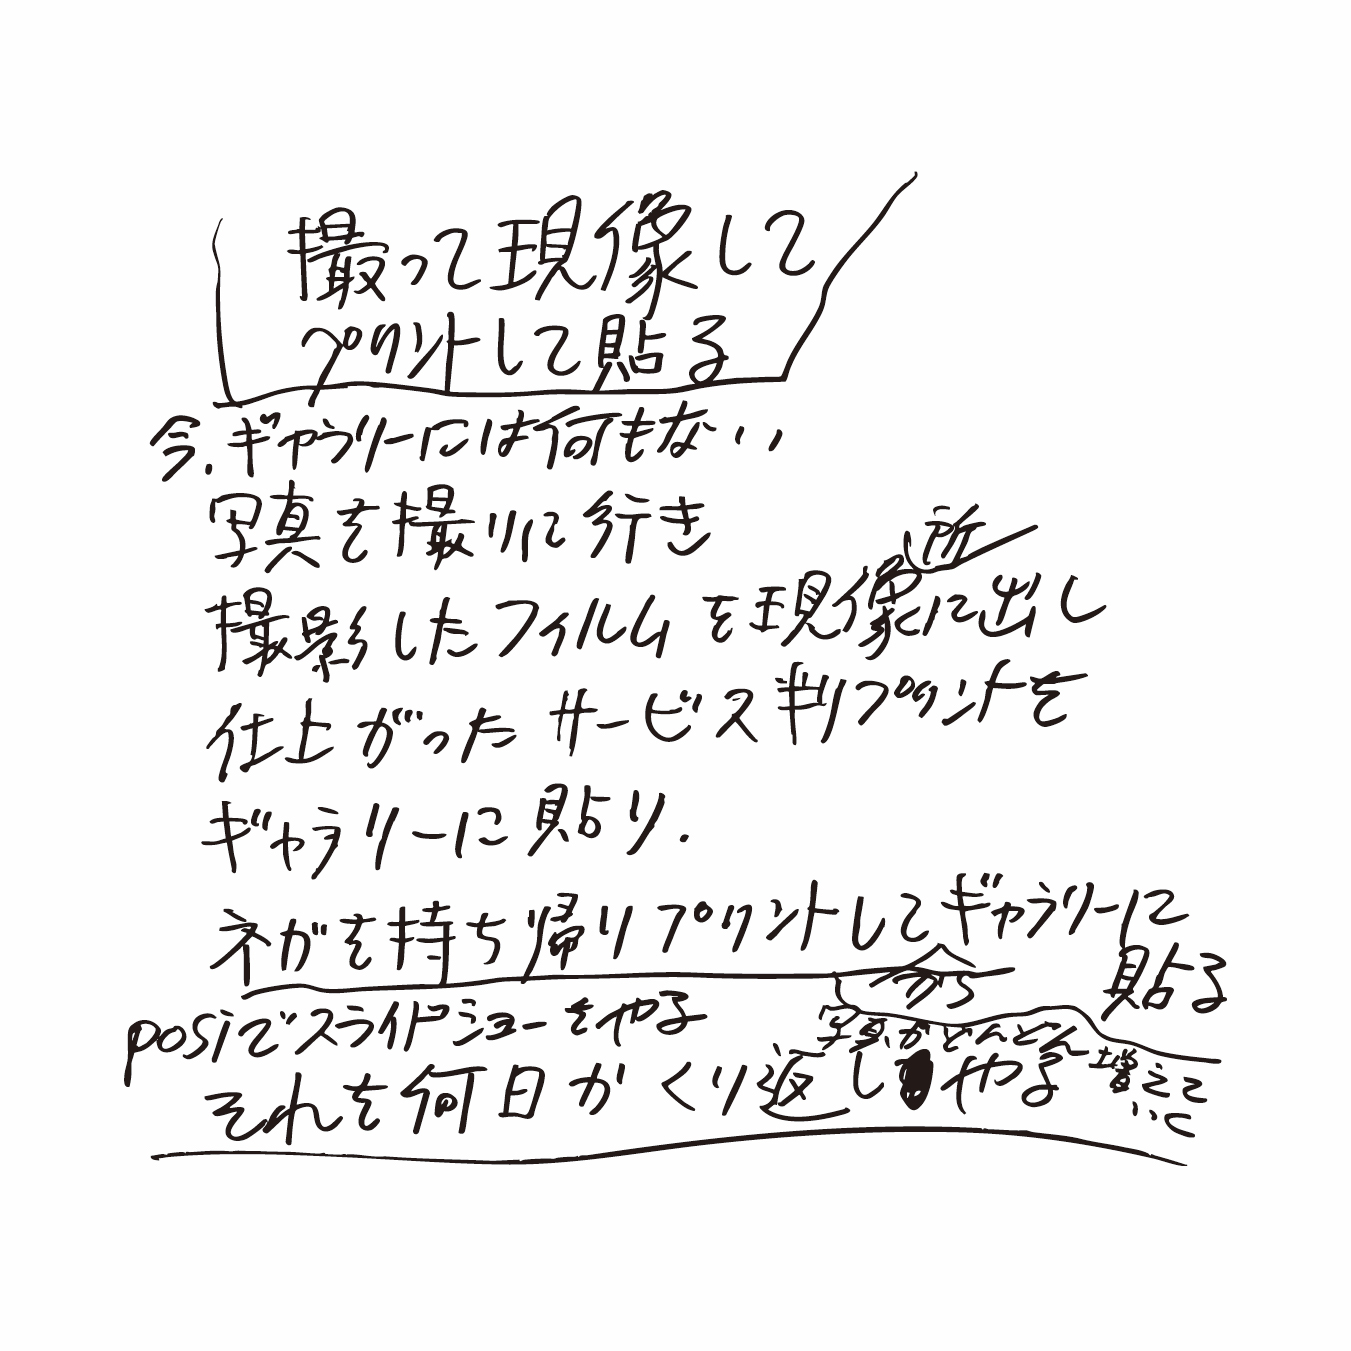 撮って現像して
プリントして貼る
今、ギャラリーには何もない、
写真を撮りに行き
撮影したフィルムを現像所に出し
仕上がったサービス判プリントを
ギャラリーに貼り、
ネガを持ち帰りプリントしてギャラリーに
貼る
から
posiでスライドショーをやる
写真がどんどん増えて
いく
それを何日かくり返しやる